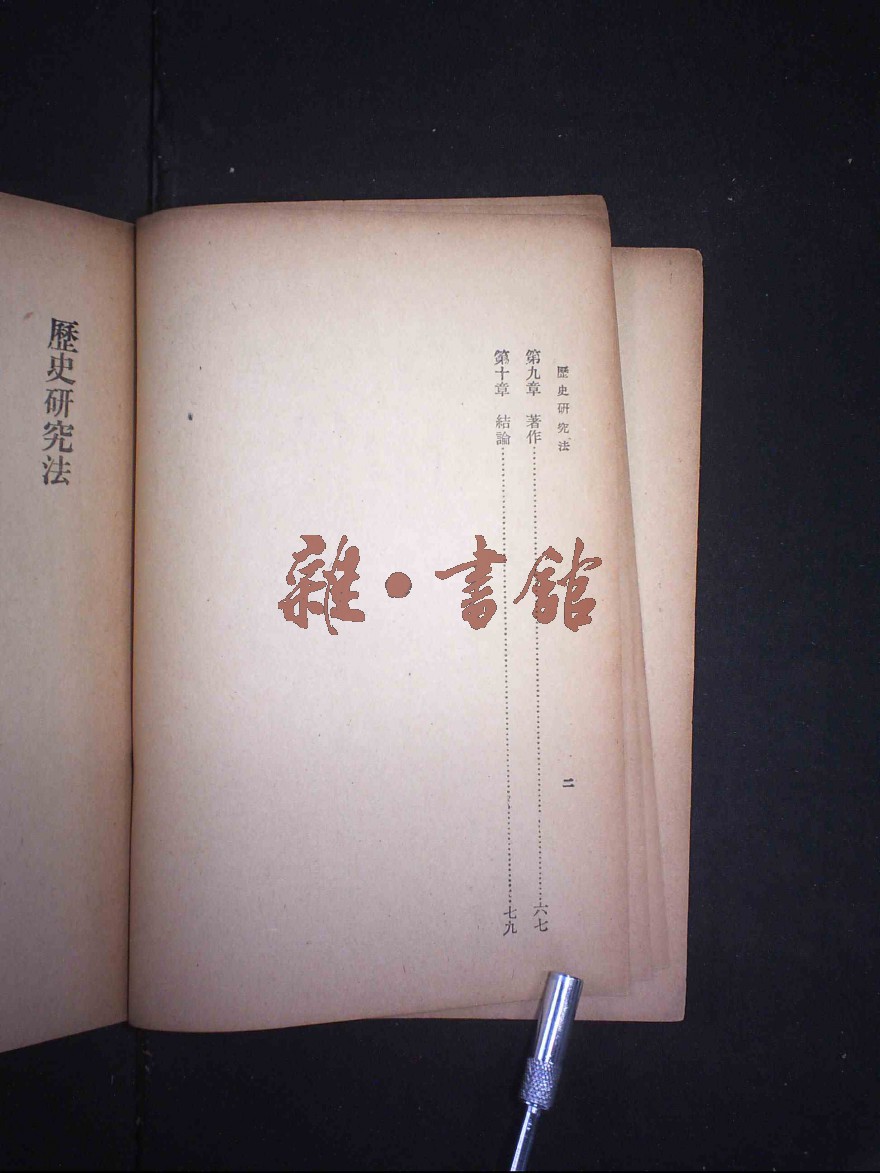 歷史研究法
二
第九章　著作……六七
第十章　結論……七九
歷史研究法
雜•書館